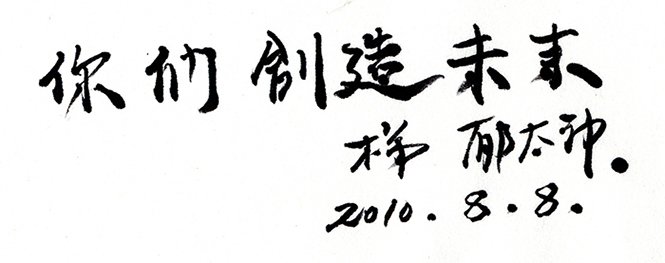 你們創造未来
梯 郁太神.
2010.8.8.